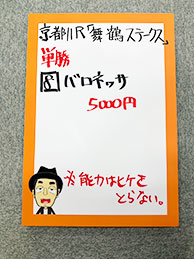 京都11R「舞鶴ステークス」
単勝
バロネッサ
5000円
※能力はヒケを
とらない。